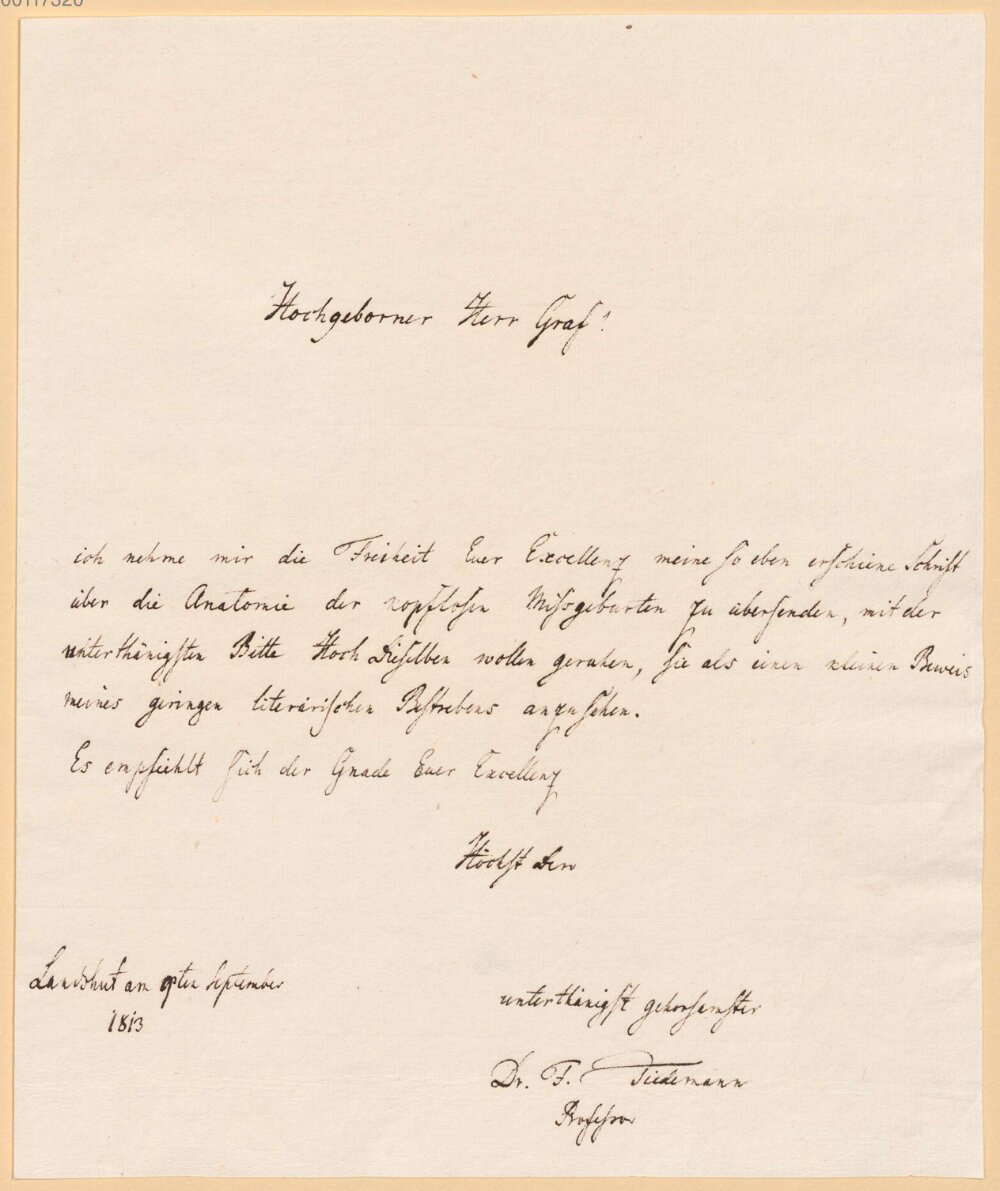 Hochgeborner Herr Graf!
ich nehme mir die Freiheit Euer Excellenz meine so eben erschiene Schrift
über die Anatomie der kopflosen Missgeburten zu übersenden, mit der
unterthänigsten Bitte Hoch Dieselben wollen geruhen, sie als einen kleinen Beweis
meines geringen literärischen Bestrebens anzusehen.
Es empfiehlt sich der Gnade Euer Excellenz
Höchst Dero
Landshut am 9ten September
1813
unterthänigst gehorsamster
Dr. F. Tiedemann
Professor